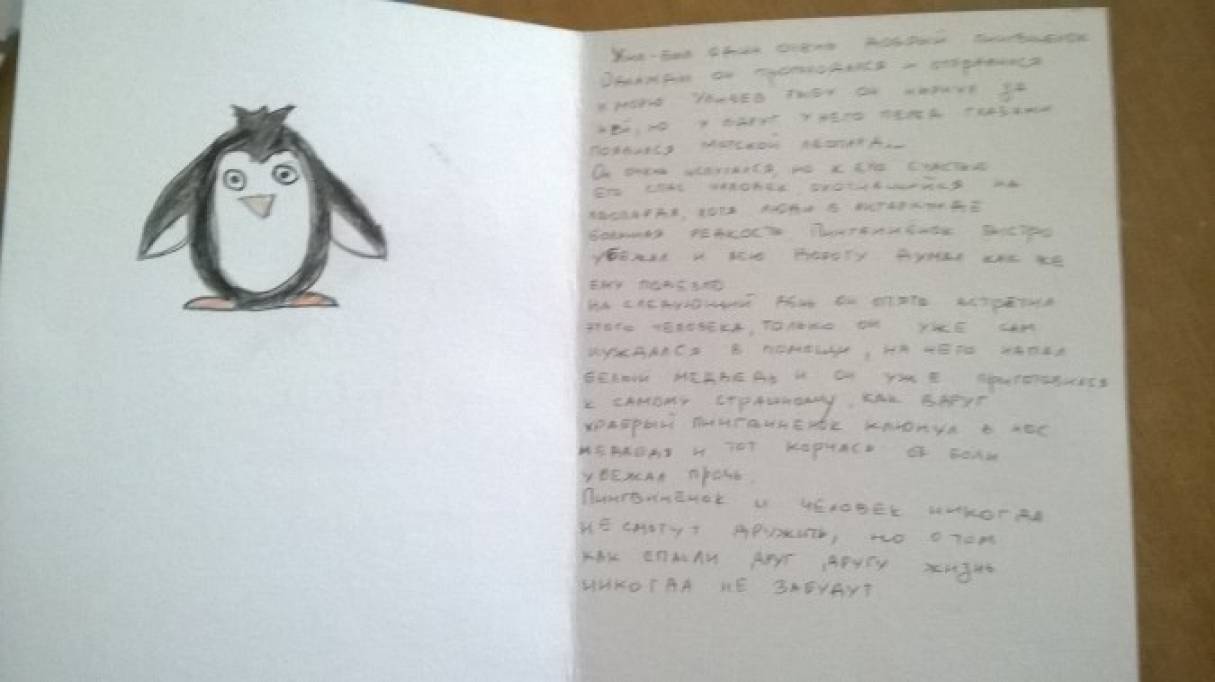 Жил-был один очень добрый пингвинёнок
Однажды он прогуливался и отправился
к морю Увидев рыбу он нырнул за
ней, но и вдруг у него перед глазами
появился морской леопард...
Он очень испугался, но к его счастью
его спас человек охотившийся на
леопарда, хотя люди в Антарктиде
большая редкость Пингвинёнок быстро
убежал и всю дорогу думал как же
ему повезло
На следующий день он опять встретил
этого человека, только он уже сам
нуждался в помощи, на него напал
белый медведь и он уже приготовился
к самому страшному, как вдруг
храбрый пингвиненок клюнул в нос
медведя и тот корчась от боли
убежал прочь.
Пингвинёнок и человек никогда
не смогут дружить, но о том
как спасли друг другу жизнь
никогда не забудут